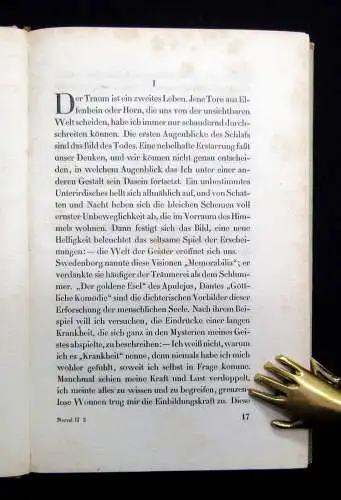 I
Der Traum ist ein zweites Leben. Jene Tore aus El-
fenbein oder Horn, die uns von der unsichtbaren
Welt scheiden, habe ich immer nur schaudernd durch-
schreiten können. Die ersten Augenblicke des Schlafs
sind das Bild des Todes. Eine nebelhafte Erstarrung faßt
unser Denken, und wir können nicht genau entschei-
den, in welchem Augenblick das Ich unter einer an-
deren Gestalt sein Dasein fortsetzt. Ein unbestimmtes
Unterirdisches hellt sich allmählich auf, und von Schat-
ten und Nacht heben sich die bleichen Schemen voll
ernster Unbeweglichkeit ab, die im Vorraum des Him-
mels wohnen. Dann festigt sich das Bild, eine neue
Helligkeit beleuchtet das seltsame Spiel der Erschei-
nungen: — die Welt der Geister eröffnet sich uns.
Swedenborg nannte diese Visionen „Memorabilia“; er
verdankte sie häufiger der Träumerei als dem Schlum-
mer. „Der goldene Esel“ des Apulejus, Dantes „Gött-
liche Komödie“ sind die dichterischen Vorbilder dieser
Erforschung der menschlichen Seele. Nach ihrem Bei-
spiel will ich versuchen, die Eindrücke einer langen
Krankheit, die sich ganz in den Mysterien meines Gei-
stes abspielte, zu beschreiben: — Ich weiß nicht, warum
ich es „Krankheit“ nenne, denn niemals habe ich mich
wohler gefühlt, soweit ich selbst in Frage komme.
Manchmal schien meine Kraft und Lust verdoppelt,
ich meinte alles zu wissen und zu begreifen, grenzen-
lose Wonnen trug mir die Einbildungskraft zu. Diese
Nerval II 2
17